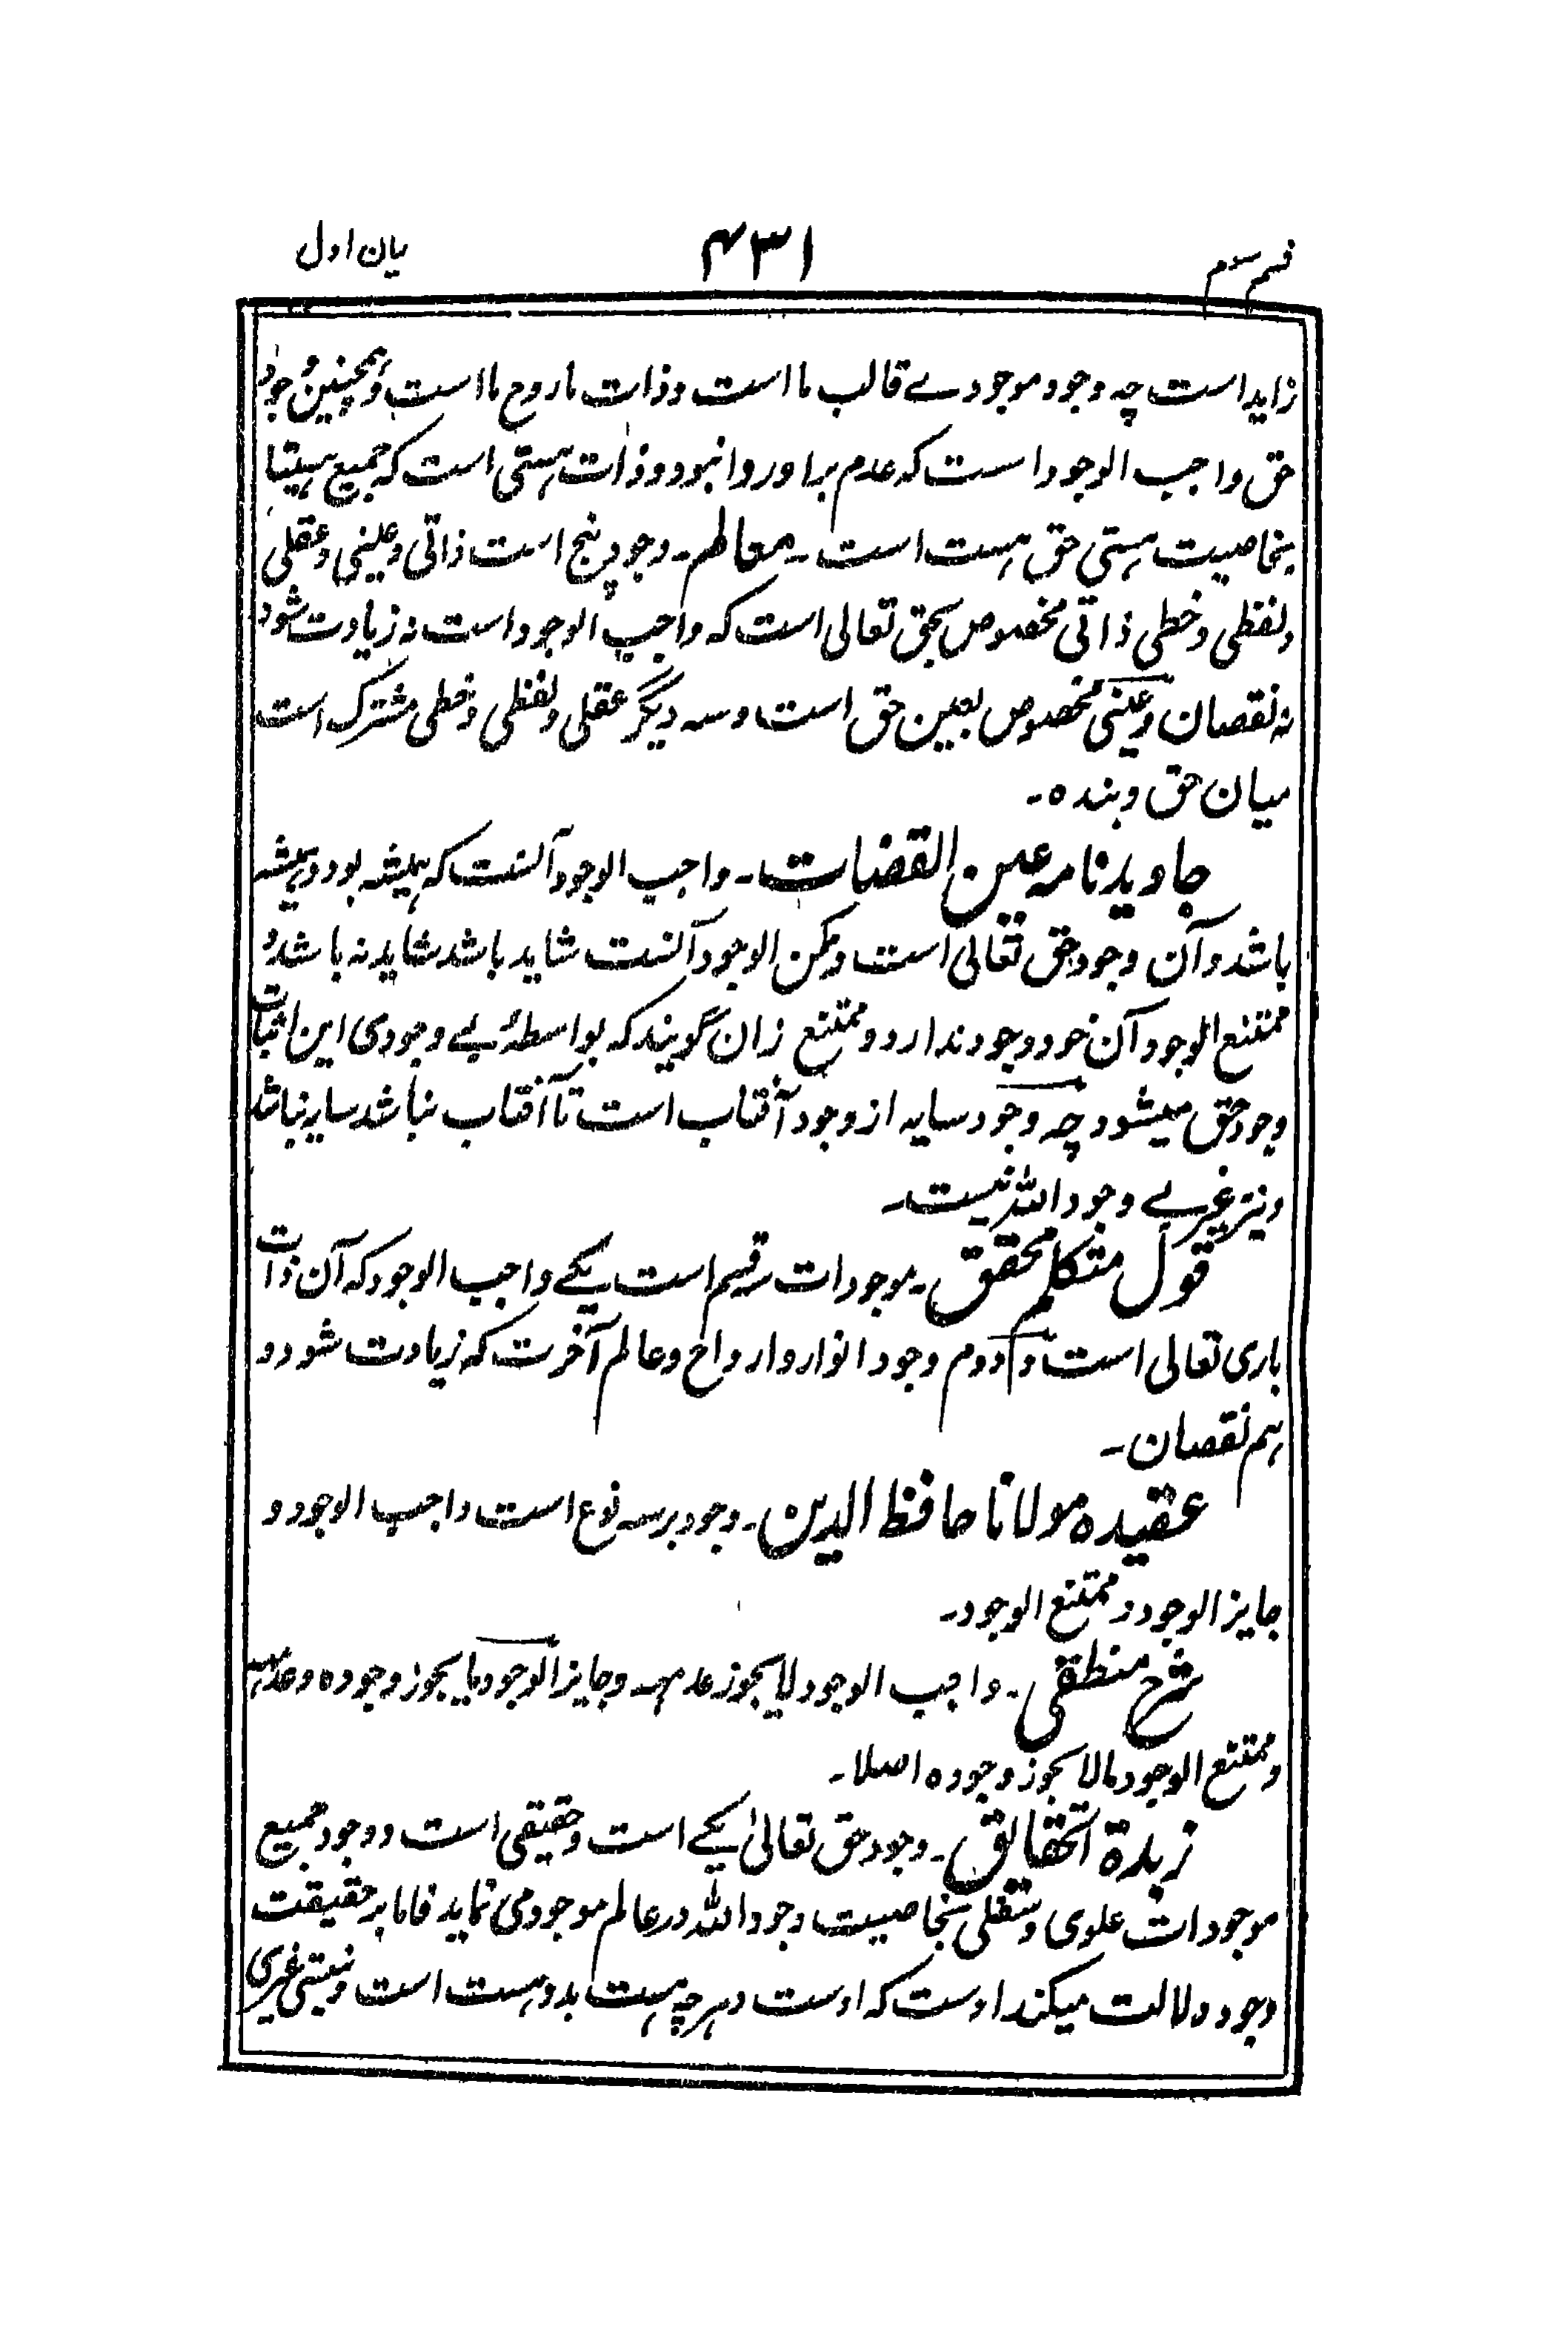 قسم سوم ۴۳۱ بیان اول
زاید است چه وجود موجودے قالب ما است و ذات ما روح ما است و همچنین وجود
حق واجب الوجود است که عدم برا و روا نبود و ذات هستی است که جمیع هستیها
بخاصیت هستی حق هست است ۔ معالم ۔ وجود پنج است ذاتی و عینی و عقلی
و لفظی و خطی ذاتی مخصوص بحق تعالی است که واجب الوجود است نه زیادت شود
نه نقصان و عینی مخصوص بعین حق است و سه دیگر عقلی و لفظی و خطی مشترک است
میان حق و بنده ۔
جاویدنامه عین القضات ۔ واجب الوجود آنست که همیشه بود و همیشه
باشد و آن وجود حق تعالی است و ممکن الوجود آنست شاید باشد شاید نه باشد و
ممتنع الوجود آن خود وجود ندارد و ممتنع زان گویند که بواسطهٔ بے وجودی این اثبات
وجود حق میشود چه وجود سایه از وجود آفتاب است تا آفتاب نباشد سایه نباشد
و نیز غیر بے وجود الله نیست ۔
قول متکلم محقق ۔ موجودات سه قسم است یکے واجب الوجود که آن ذات
باری تعالی است و دوم وجود انوار و ارواح و عالم آخرت که زیادت شود و
هم نقصان ۔
عقیده مولانا حافظ الدین ۔ وجود بر سه نوع است واجب الوجود و
جایز الوجود و ممتنع الوجود ۔
شرح منطقی ۔ واجب الوجود لا یجوز عدمه و جایز الوجود ما یجوز وجوده و عدمه
و ممتنع الوجود مالا یجوز وجوده اصلا ۔
زبدة الحقایق ۔ وجود حق تعالیٰ یکے است و حقیقی است و وجود جمیع
موجودات علوی و سفلی بخاصیت وجود الله در عالم موجود می نماید فاما بر حقیقت
وجود دلالت میکند اوست که اوست و هر چه هست بدو هست است و نیستی غیری